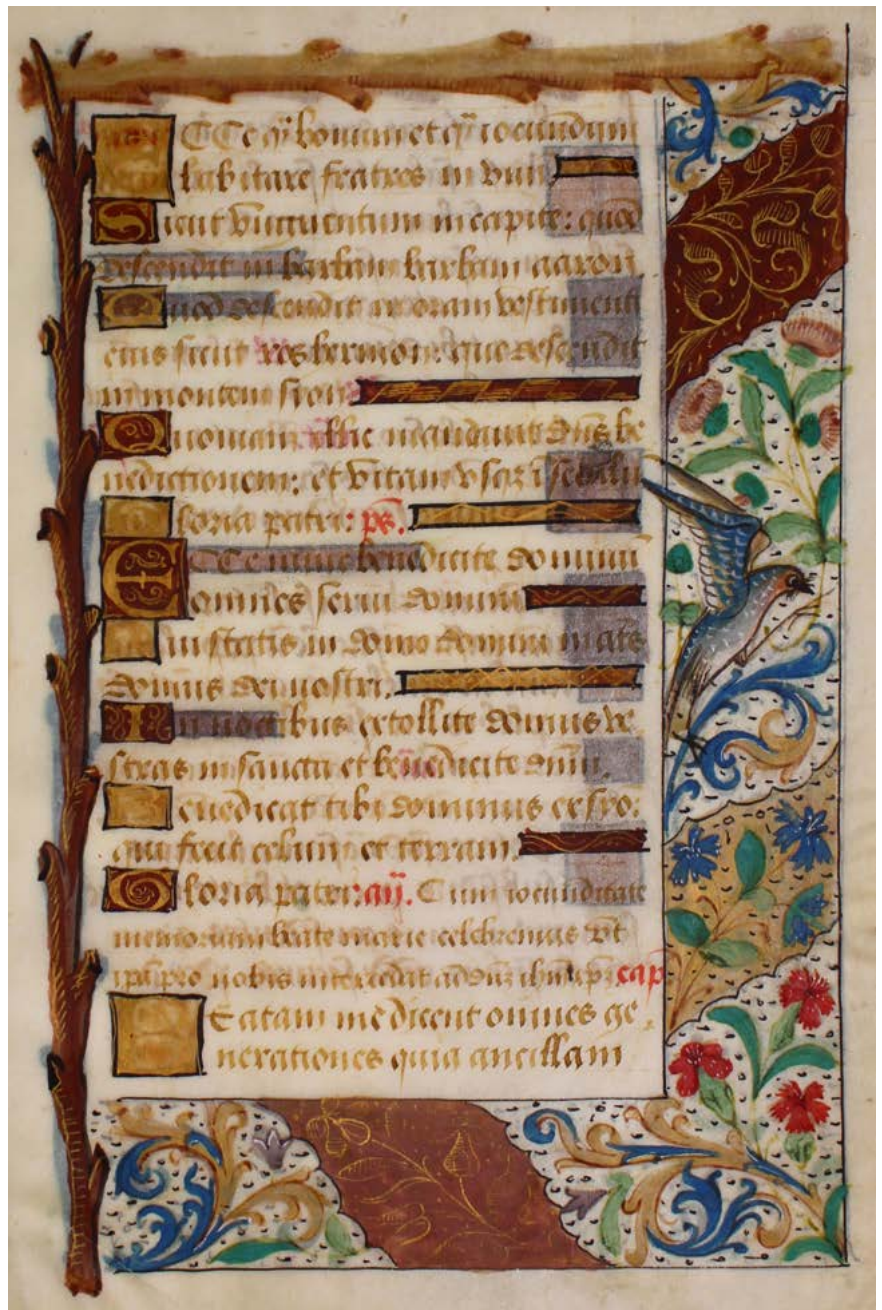 CCe q̃ bonum et q̃ iocundum
habitare fratres in vnu
Sicut vnguentum in capite: quod
descendit in barbam barbam aaron
Quod descendit in oram vestimenti
eius sicut ros hermon: qui descendit
in montem sion
Quoniam illic mandauit dn̄s be
nedictionem: et vitam vsq̃ ī seculu
loria patri: ps̄.
ECCe nunc benedicite dominū
omnes serui domini
ui statis in domo domini in atris
domus dei nostri.
In noctibus extollite manus ve
stras in sancta et benedicite dnm̄.
enedicat tibi dominus ex syo:
qui fecit celum et terram.
Gloria patri: añ. Cum iocunditate
memoriam beate marie celebremus vt
ipa pro nobis intercedat ad dnz̄ ihm̄ xp̄z cap̄
Eatam me dicent omnes ge
nerationes quia ancillam